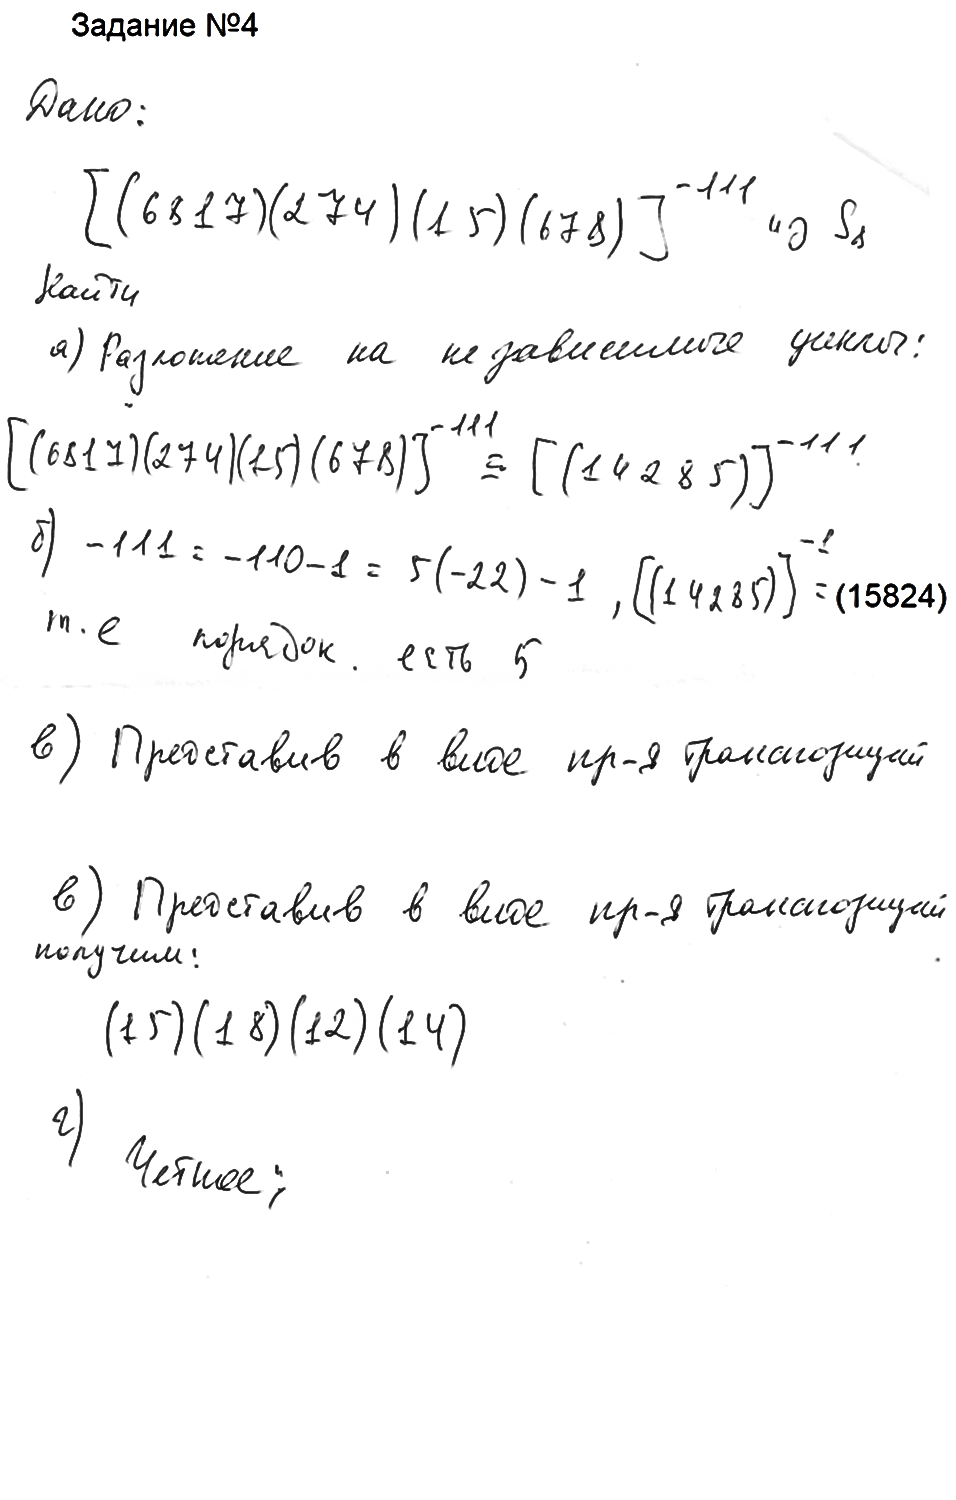 Задание №4
Дано:
[(6817)(274)(15)(678)]^-111 из S8
Найти
а) Разложение на независимые циклы:
[(6817)(274)(15)(678)]^-111 = [(14285)]^-111
б) -111 = -110-1 = 5(-22) - 1 , [(14285)]^-1 = (15824)
т.е порядок. есть 5
в) Представив в виде пр-я транспозиций
в) Представив в виде пр-я транспозиций
получим:
(15)(18)(12)(14)
г)
Четное;